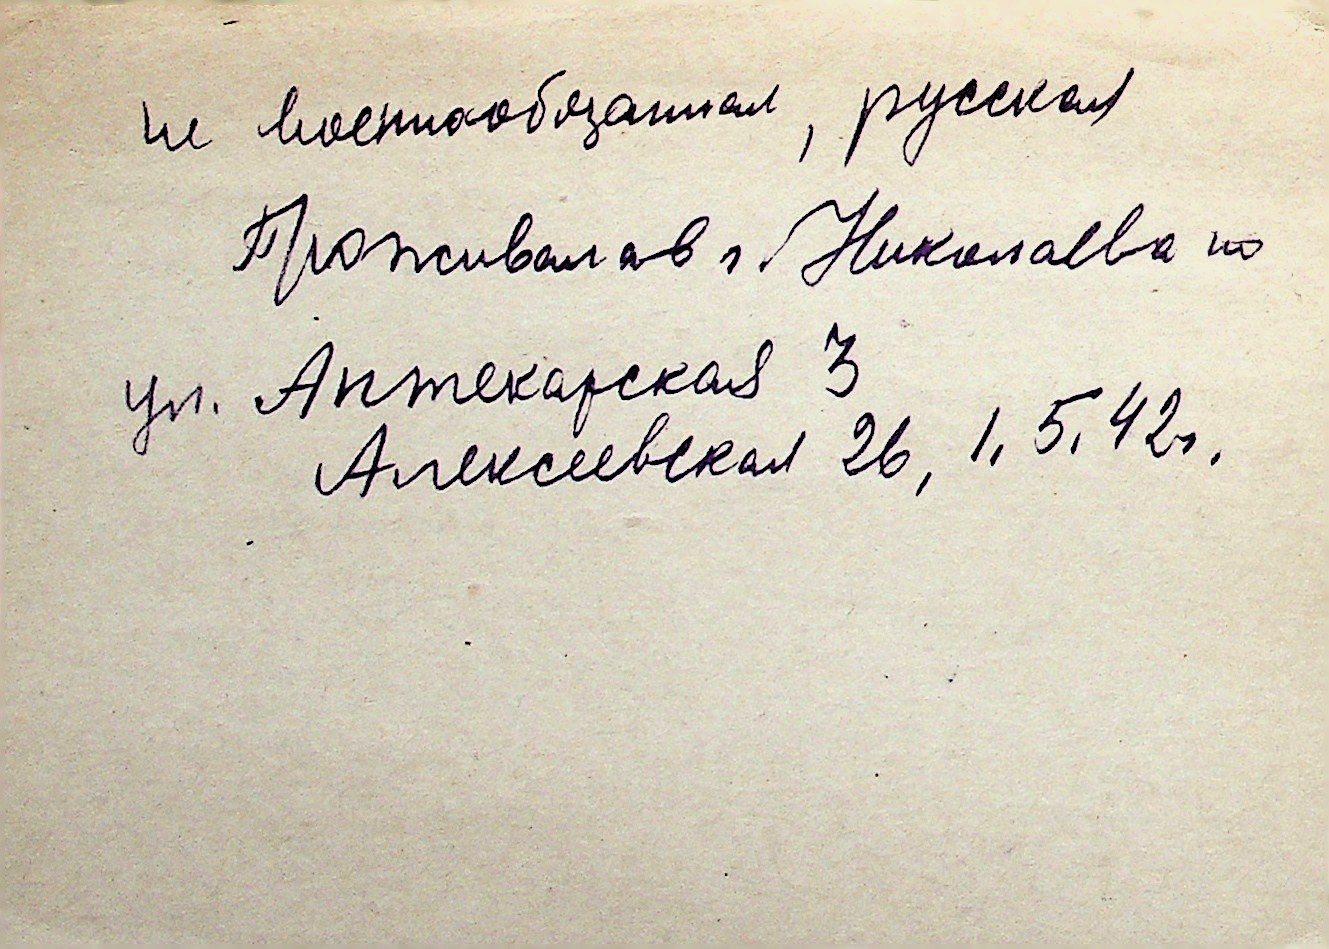 не военнообязанная, русская
Проживала в г. Николаева по
ул. Аптекарская 3
Алексеевская 26, 1.5.42г.